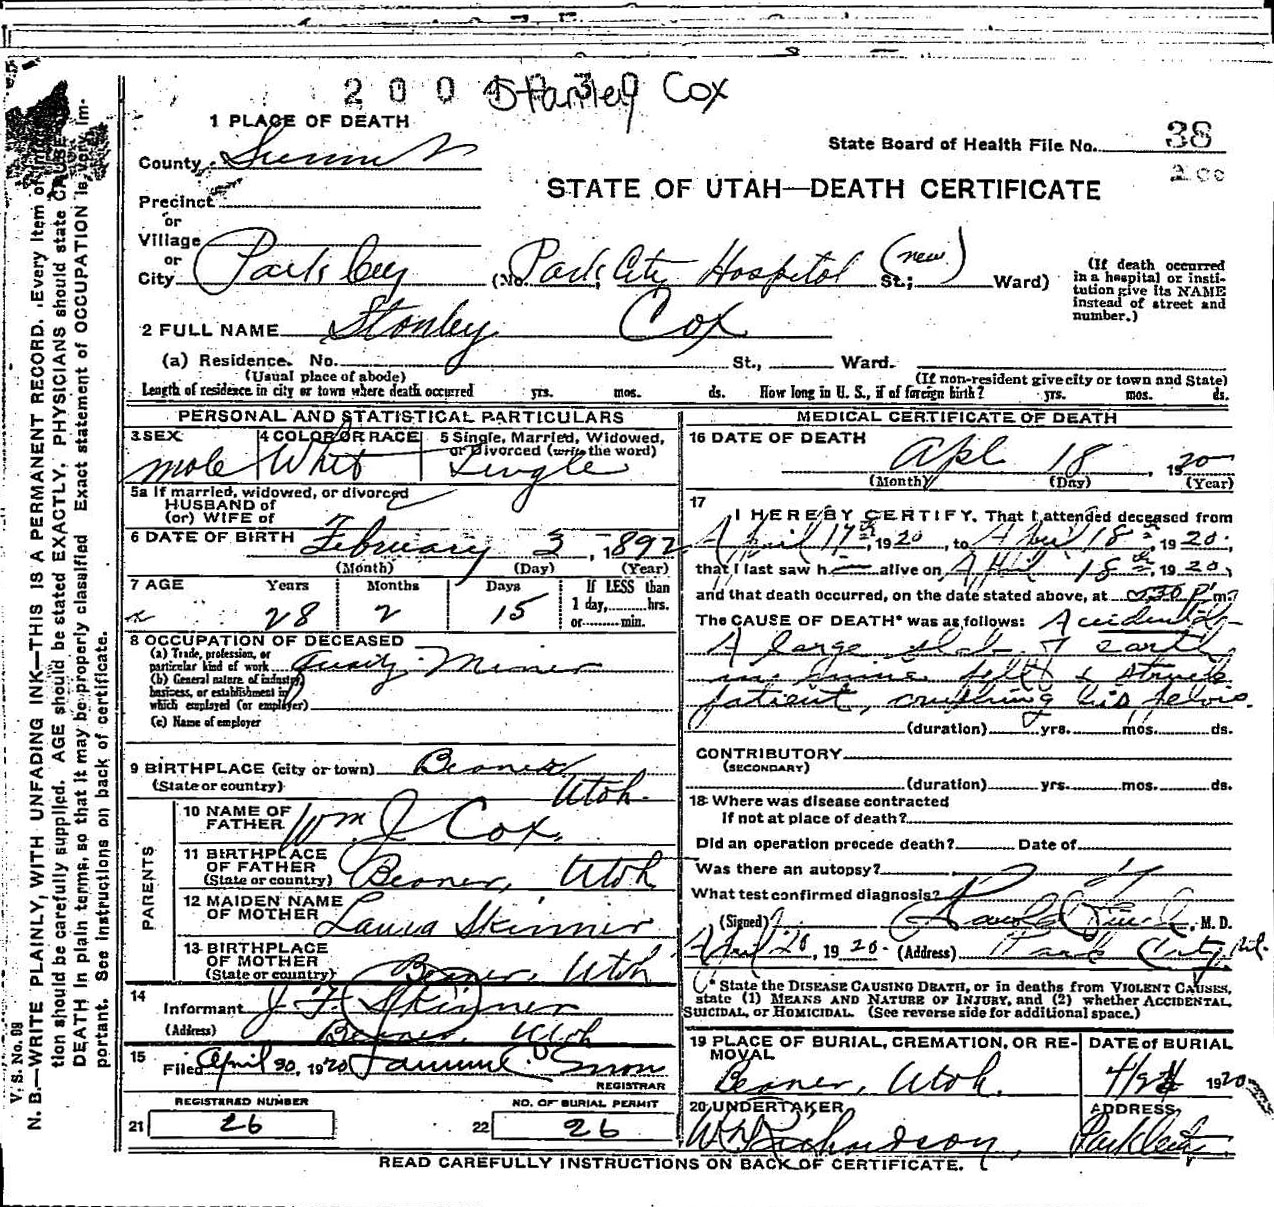 2 0 0 4 3 0
Stanley Cox
1 PLACE OF DEATH
County Summit
State Board of Health File No. 38
200
STATE OF UTAH—DEATH CERTIFICATE
Precinct
or
Village
or
City Park City (No. Park City Hospital (new) St.; Ward)
(If death occurred in a hospital or insti-
tution give its NAME
instead of street and
number.)
2 FULL NAME Stanley Cox
(a) Residence. No. St., Ward.
(Usual place of abode)
(If non-resident give city or town and State)
Length of residence in city or town where death occurred yrs. mos. ds. How long in U. S., if of foreign birth? yrs. mos. ds.
PERSONAL AND STATISTICAL PARTICULARS
3 SEX
male
4 COLOR OR RACE
Whit
5 Single, Married, Widowed,
or Divorced (write the word)
Single
5a If married, widowed, or divorced
HUSBAND of
(or) WIFE of
6 DATE OF BIRTH February 3, 1892
(Month) (Day) (Year)
7 AGE Years Months Days If LESS than
1 day, hrs.
or min.
28 2 15
8 OCCUPATION OF DECEASED
(a) Trade, profession, or
particular kind of work Miner
(b) General nature of industry,
business, or establishment in
which employed (or employer)
(c) Name of employer
9 BIRTHPLACE (city or town) Beaver
(State or country) Utah.
PARENTS
10 NAME OF
FATHER Wm J Cox,
11 BIRTHPLACE
OF FATHER
(State or country) Beaver, Utah
12 MAIDEN NAME
OF MOTHER Laura Skinner
13 BIRTHPLACE
OF MOTHER
(State or country) Beaver, Utah
14
Informant J. F. Skinner
(Address) Beaver, Utah
15
Filed April 20, 1920 Snow
REGISTRAR
REGISTERED NUMBER
21 26
NO. OF BURIAL PERMIT
22 26
MEDICAL CERTIFICATE OF DEATH
16 DATE OF DEATH
Apl 18, 1920
(Month) (Day) (Year)
17
I HEREBY CERTIFY, That I attended deceased from
April 17th, 1920, to April 18th, 1920,
that I last saw h alive on April 18th, 1920,
and that death occurred, on the date stated above, at 5:30 P m.
The CAUSE OF DEATH* was as follows: Accidental
A large slab of earth
in mine fell & struck
patient, crushing his pelvis.
(duration) yrs. mos. ds.
CONTRIBUTORY
(SECONDARY)
(duration) yrs. mos. ds.
18 Where was disease contracted
If not at place of death?
Did an operation precede death? Date of
Was there an autopsy?
What test confirmed diagnosis?
(Signed) M. D.
April 20, 1920. (Address) Park City, Ut.
* State the DISEASE CAUSING DEATH, or in deaths from VIOLENT CAUSES,
state (1) MEANS AND NATURE OF INJURY, and (2) whether ACCIDENTAL,
SUICIDAL, or HOMICIDAL. (See reverse side for additional space.)
19 PLACE OF BURIAL, CREMATION, OR RE-
MOVAL
Beaver, Utah.
DATE of BURIAL
1920
20 UNDERTAKER
Richardson,
ADDRESS
Park City
READ CAREFULLY INSTRUCTIONS ON BACK OF CERTIFICATE.
V. S. No. 98
N. B.—WRITE PLAINLY, WITH UNFADING INK—THIS IS A PERMANENT RECORD. Every item of informa-
tion should be carefully supplied. AGE should be stated EXACTLY. PHYSICIANS should state CAUSE
DEATH in plain terms, so that it may be properly classified. Exact statement of OCCUPATION is very im-
portant. See instructions on back of certificate.